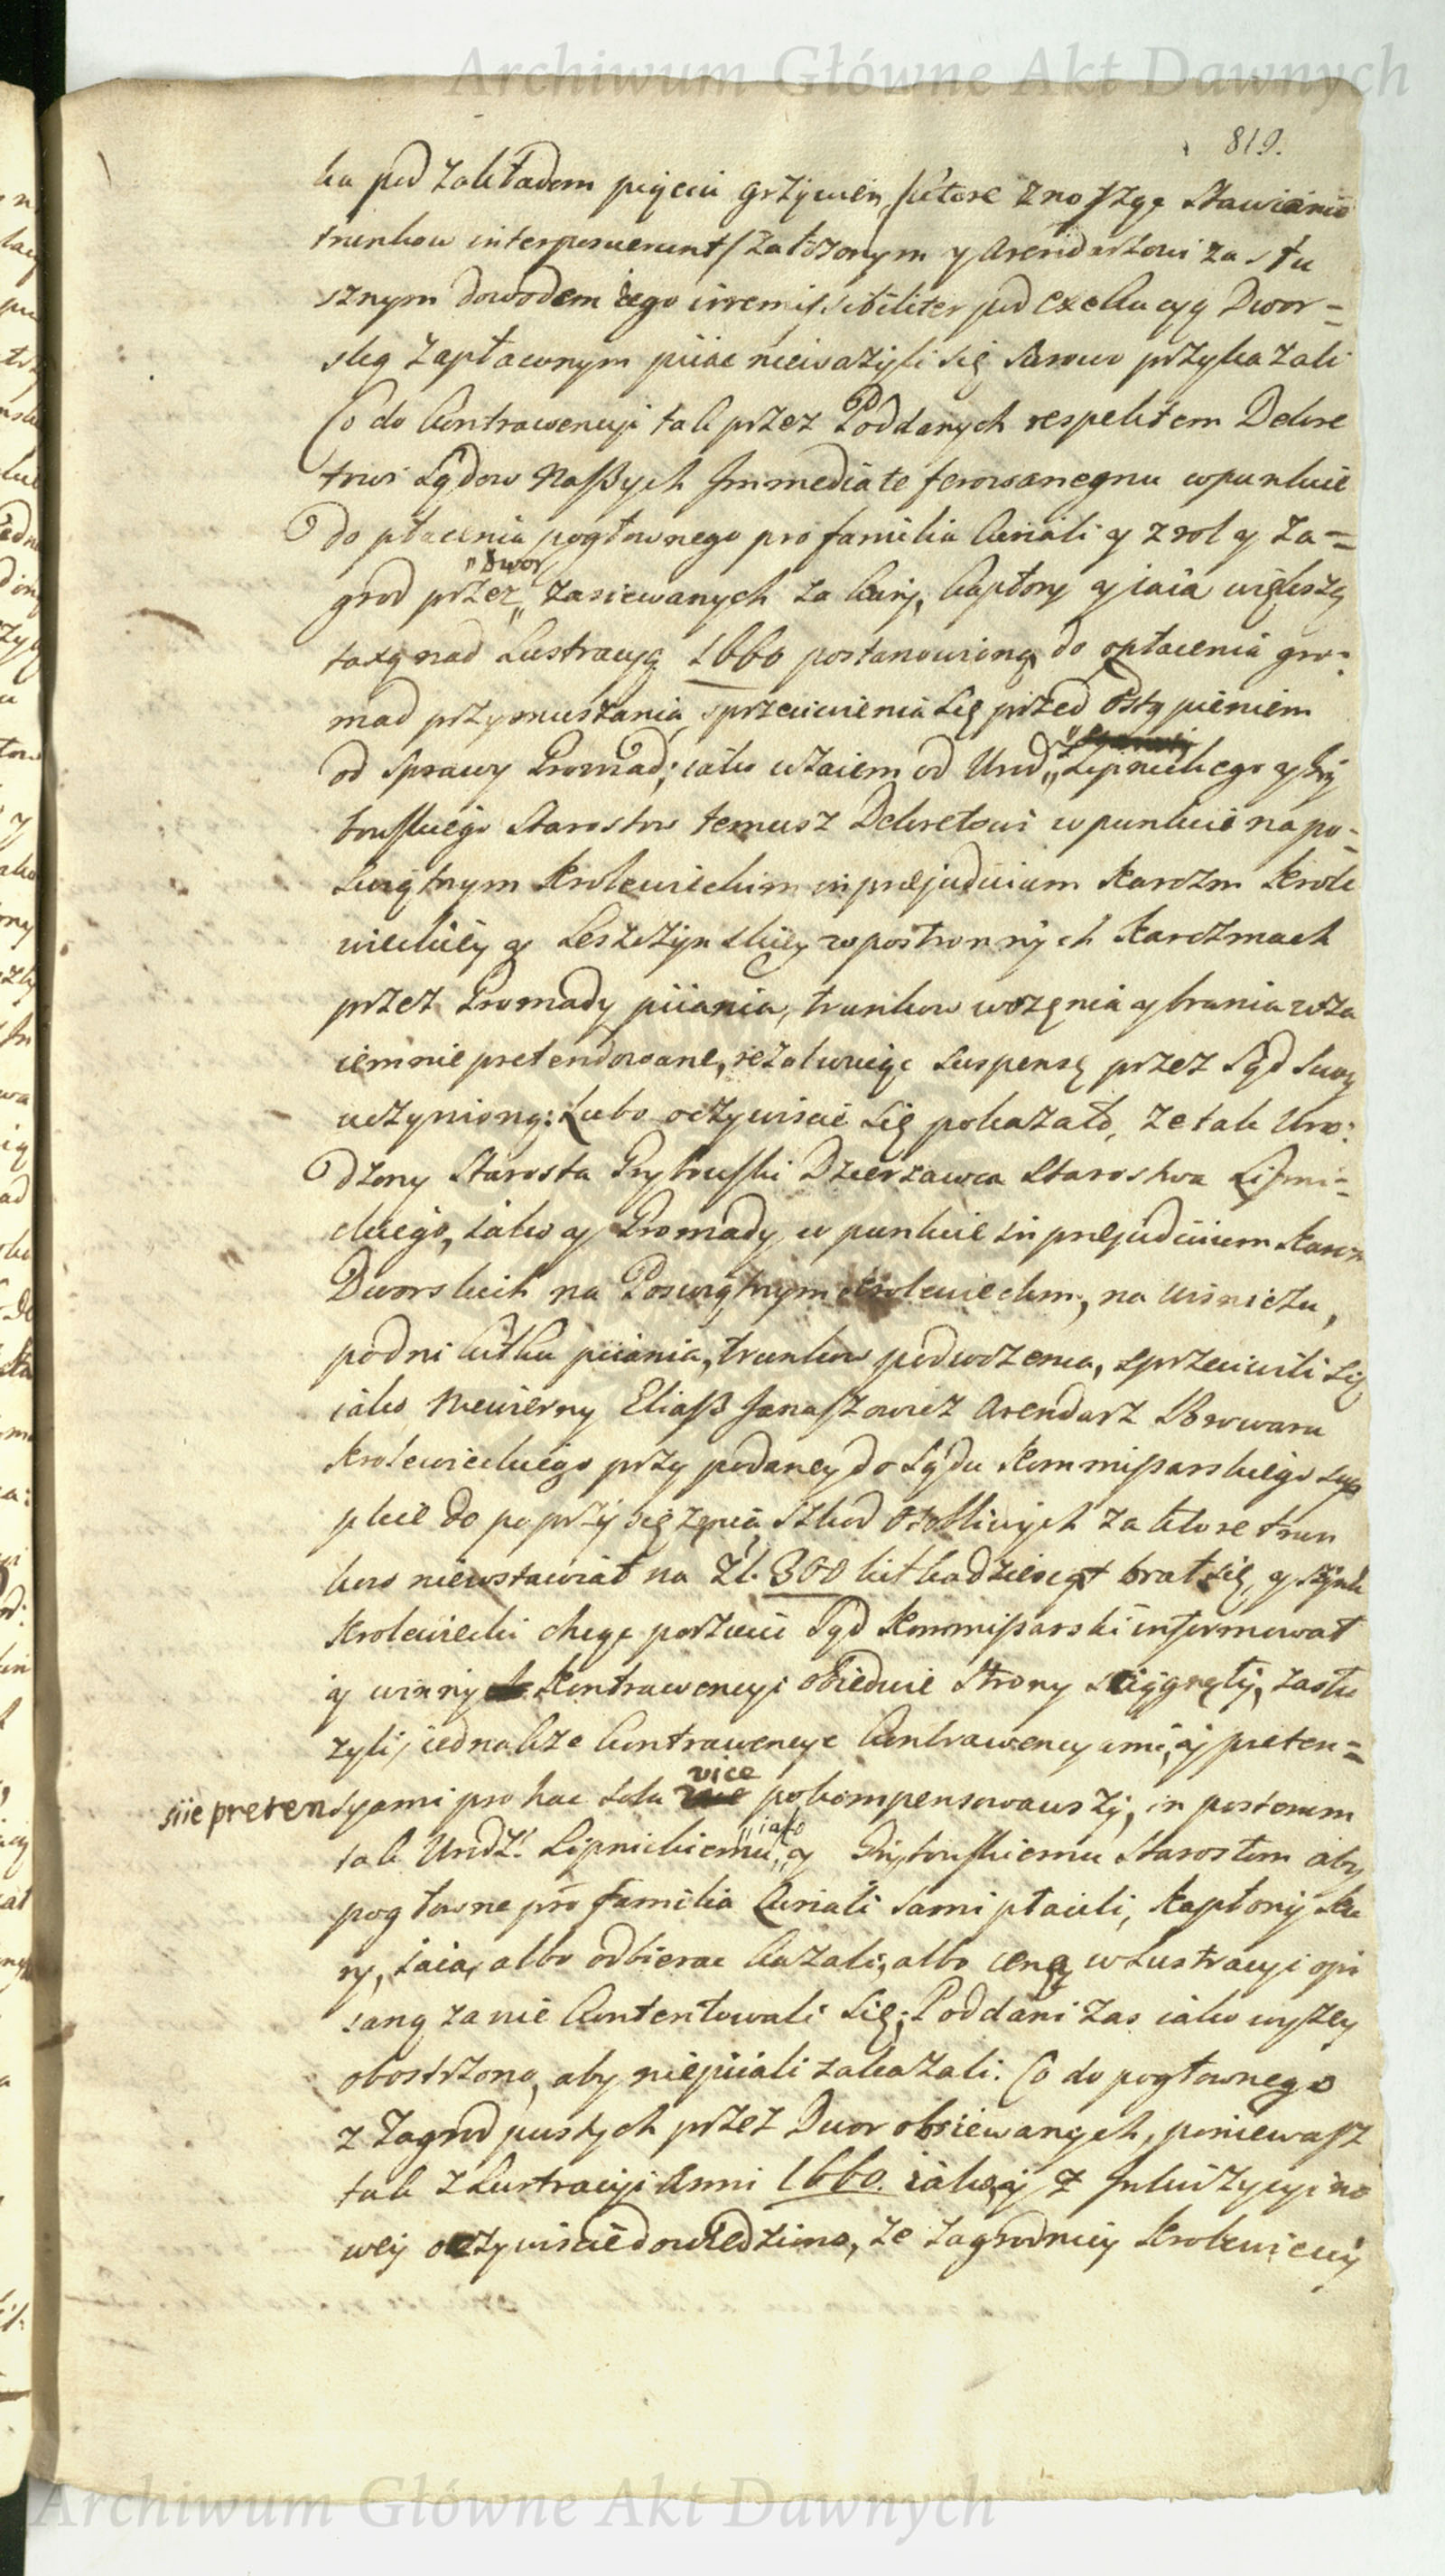 Archiwum Główne Akt Dawnych
819.
ka pod zakładem pięciu grzywien, /ktore znoszący stawianie
trunkow interposuerunt/ założonym y Arendarzowi za słu
sznym dowodem iego irremissibiliter pod exekucyą Dwor=
ską zapłaconym piiac nieważyli się surowo przykazali
Co do kontrawencyi tak przez Poddanych respektem Dekre
towi Sądow Naszych Immediate ferowanegnu wpunkcie
do płacenia pogłownego pro familia Curiali y z rol y Za=
"Dwor
grod przez„ zasiewanych za kury, kapłony y iaia większą
taxą nad Lustracyą 1660 postanowioną do opłacenia gro=
mad przymuszania sprzeciwienia się przed odstąpieniem
od sprawy Gromad; iako wzaiem od Urod„ Lipnickiego y Gry
touskiego Starostow temusz Dekretowi w punkcie na po=
swiętnym Krolewieckim in praejudicium Karczm Krole
wieckiey y Leszczynskiey w postronnych Karczmach
przez Gromady piiania, trunkow wozęnia y brania wza
iemnie pretendowane, rezolwuiąc suspensę przez Sąd swoy
uczynioną: Lubo oczywiscie się pokazało, ze tak Uro=
dzony Starosta Grytouski Dzierzawca Starostwa Lipni=
ckiego, iako y Gromady w punkcie in praejudicium Karczm
Dworskich na Poswiętnym Krolewieckim, na Wisniczu,
podni kilku piiania, trunkow podwozenia, sprzeciwili się
iako Niewierny Eliasz Janaszowicz Arendarz Browaru
Krolewieckiego przy podaney do Sądu Kommissarskiego sup
plice do poprzysiężęnia szkod osobliwych za ktore trun
kow niewstawiał na Zł. 300 kilkadziesiąt brał się, y szynk
Krolewiecki chcąc porzucić Sąd Kommissarski informował
y winny Kontrawencyi obiedwie Strony sciągnęły, zasłu
zyli, iednakze kontrawencye kontrawencyami, y preten=
vice
siie preten syami pro hac sola pokompensowawszy, in posterum
„iako
tak Urodz: Lipnickiemu„ y Grytouskiemu Starostom aby
pogłowne pro familia Curiali sami płacili, Kapłony Ku
ry, iaia, albo odbierac kazali, albo ceną w Lustracyi opi
saną za nie kontentowali się; Poddani zas iako wyzey
obostrzono, aby niepiiali zakazali. Co do pogłownego
z Zagrod pustych przez Dwor obsiewanych, poniewasz
tak z Lustracyi Anni 1660. iako y z Inkwizycyi no
wey oczywiscie dowiedziono, ze zagrodnicy Krolewieccy
Archiwum Główne Akt Dawnych